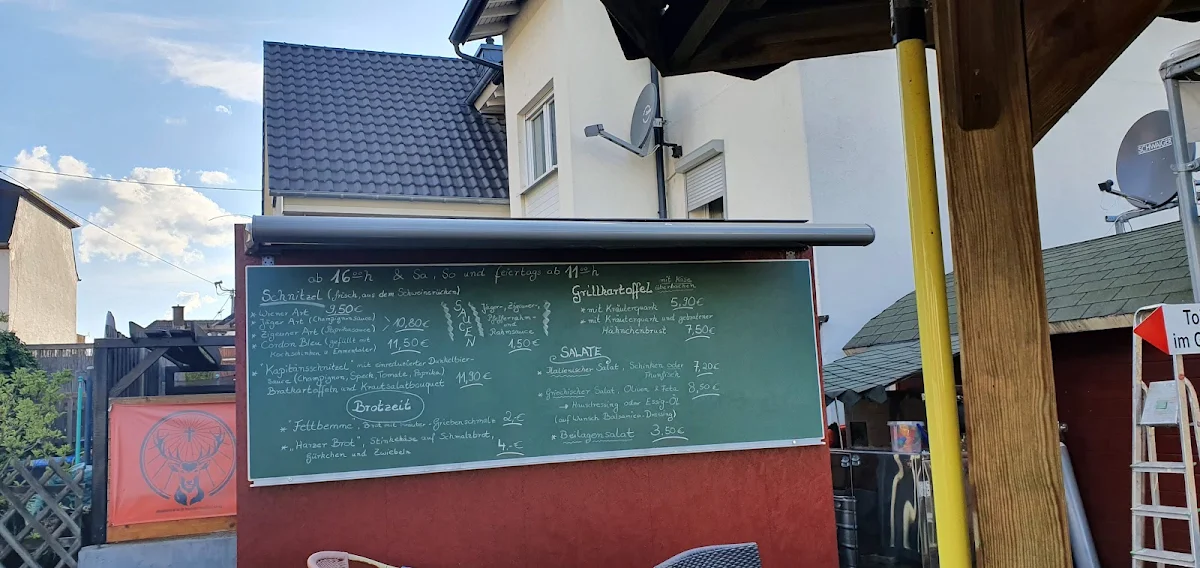 ab 16ººh & Sa, So und feiertags ab 11ººh
Schnitzel (frisch, aus dem Schweinerücken)
* Wiener Art 9,50€
* Jäger Art (Champignonsauce)
* Zigeuner Art (Paprikasauce) > 10,80€
* Cordon Bleu (gefüllt mit
Kochschinken & Emmentaler) 11,50€
* "Kapitänsschnitzel" mit
Dunkelbier-
sauce (Champignon, Speck, Tomate, Paprika)
Bratkartoffeln und Krautsalatbouquet 11,90€
SAUCEN
Jäger, Zigeuner,
Pfefferrahm-
und
Rahmsauce
1,50€
Brotzeit
* "Fettbemme", Brot mit Kräuter-Griebenschmalz 2,-€
* "Harzer Brot", Stinkekäse auf Schmalzbrot,
Gürkchen und Zwiebeln 4,-€
Grillkartoffel mit Käse
überbacken
* mit Kräuterquark 5,90€
* mit Kräuterquark und gebratner
Hähnchenbrust 7,50€
SALATE
* Italienischer Salat, Schinken oder
Thunfisch 7,20€
* Griechischer Salat, Oliven & Feta 8,50€
→ Hausdressing oder Essig-Öl
(auf Wunsch Balsamico-Dressing)
* Beilagensalat 3,50€
SCHWAIGER
To
im